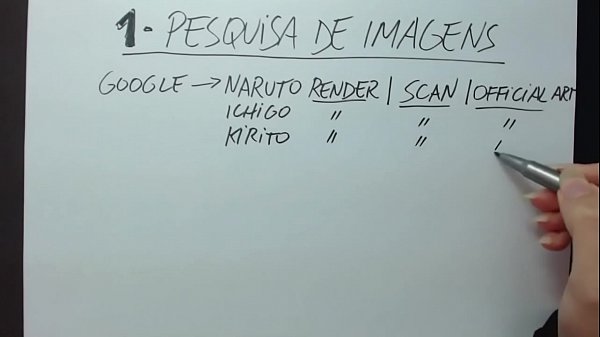 1- PESQUISA DE IMAGENS
GOOGLE → NARUTO RENDER | SCAN | OFFICIAL ART
ICHIGO " " "
KIRITO " " '